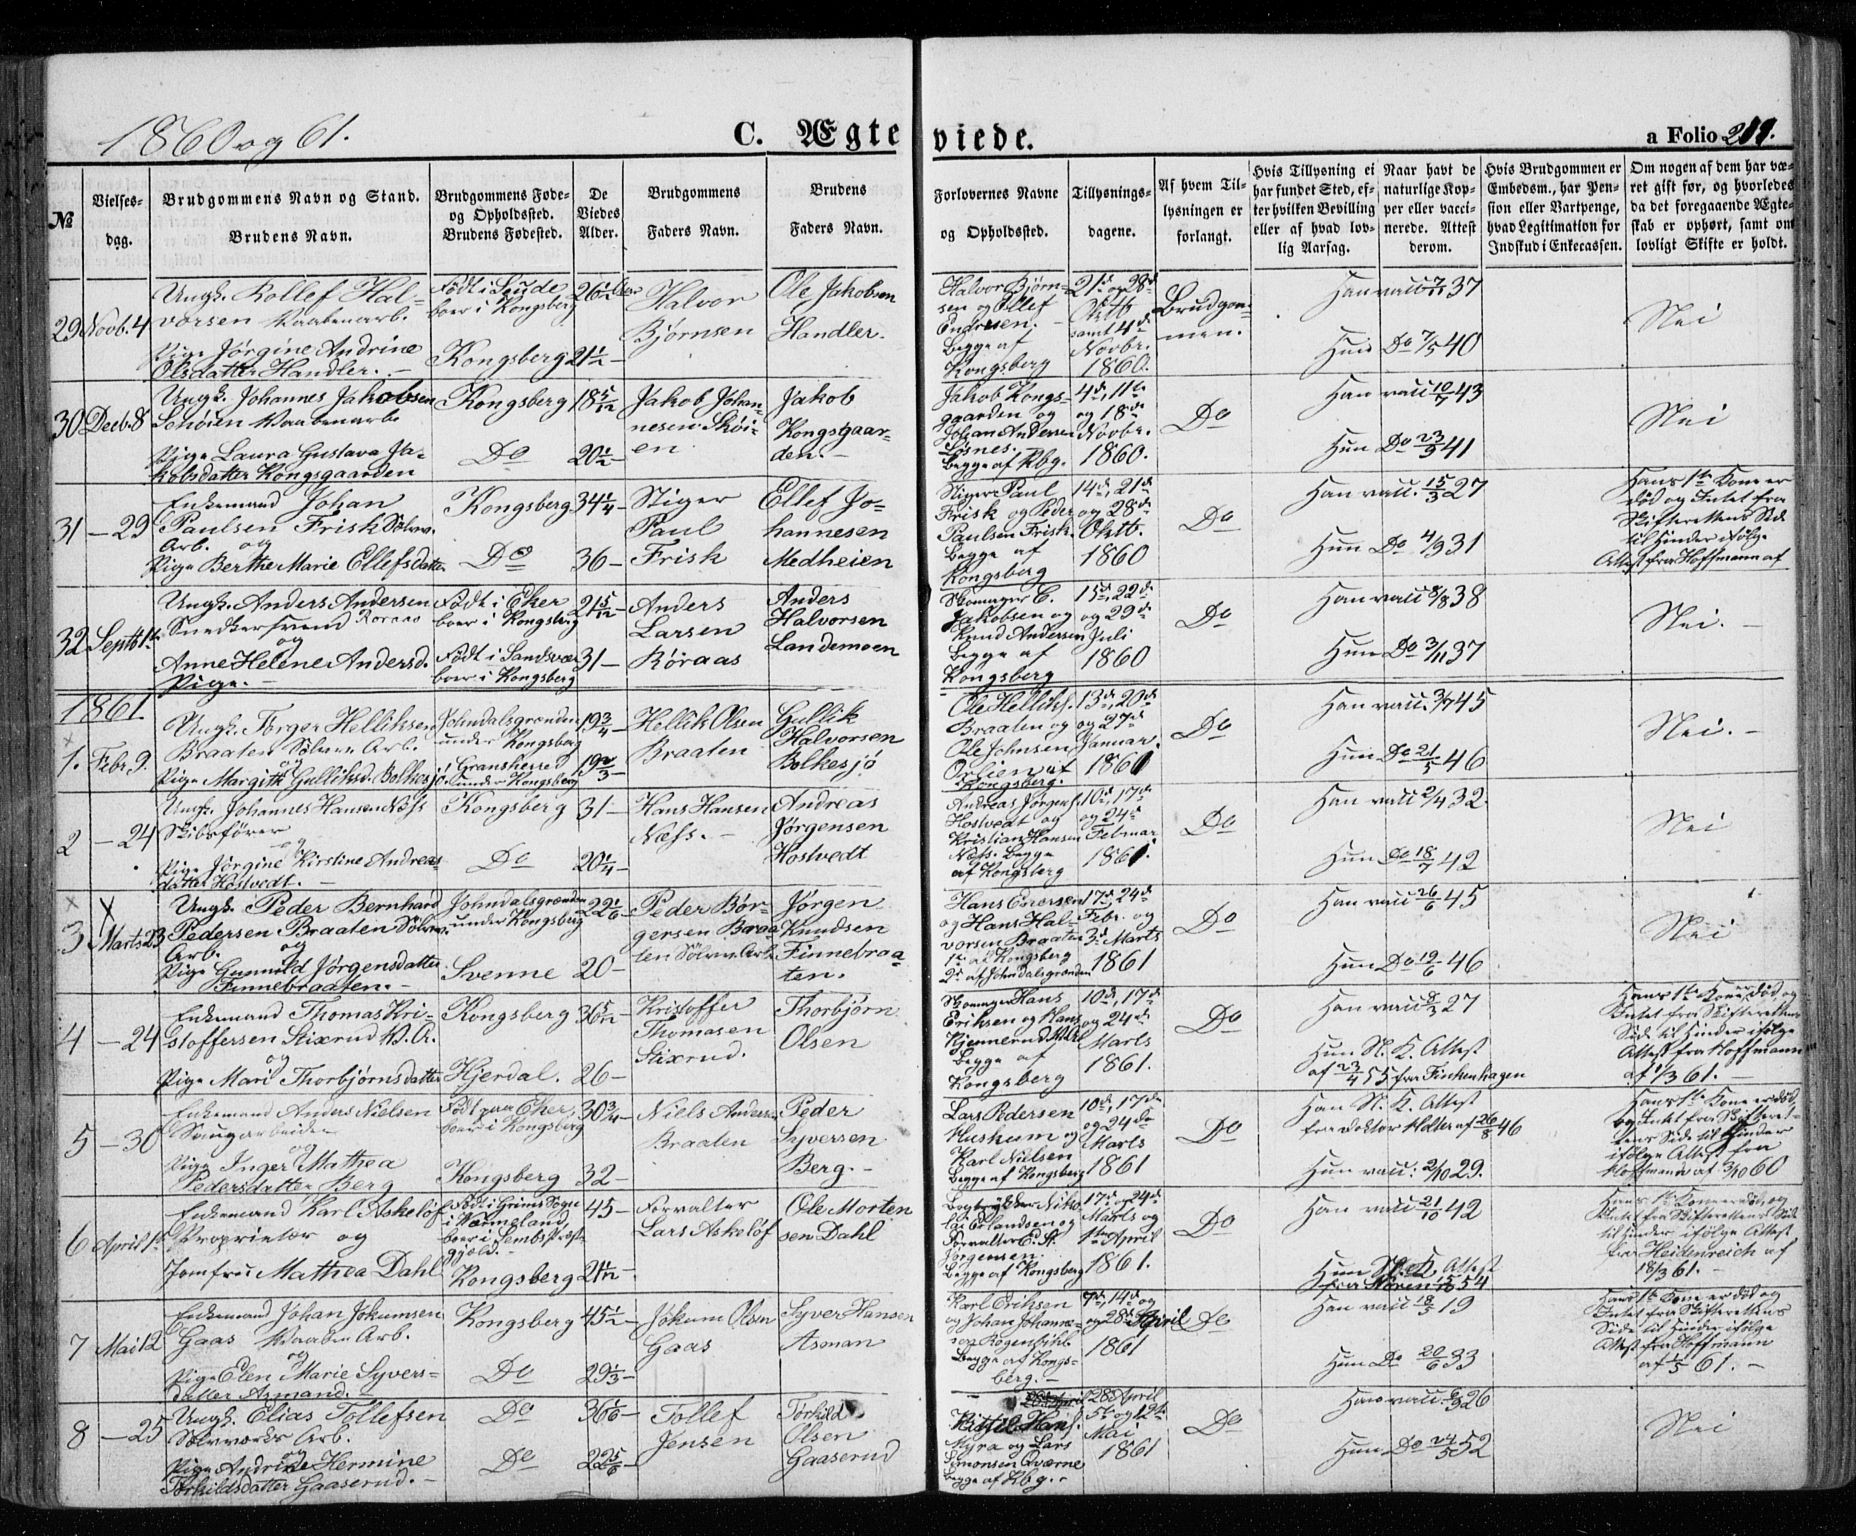 1860 og 61.
C. Ægteviede.
a Folio 219.
No
Vielsesdag.
Brudgommens Navn og Stand.
Brudens Navn.
Brudgommens Føde- og Opholdssted.
Brudens Fødested.
De Viedes Alder.
Brudgommens Faders Navn.
Brudens Faders Navn.
Forlovernes Navne og Opholdssted.
Tillysningsdagene.
Af hvem Tillysningen er forlangt.
Hvis Tillysning ei har fundet Sted, efter hvilken Bevilling eller af hvad lovlig Aarsag.
Naar havt de naturlige Kopper eller vaccinerede. Attest derom.
Hvis Brudgommen er Embedsm., har Pension eller Vartpenge, hvad Legitimation for Indskud i Enkecassen.
Om nogen af dem har været gift før, og hvorledes da det foregaaende Ægteskab er ophørt, samt om lovligt Skifte er holdt.
29 Novb. 4
Ungk. Rollef Halvorsen Vaabenarb.
Pige Jørgine Andrine
Olsdatter Handler. -
boer i Kongsberg
Kongsberg
26 1/2 Aar
21 1/2 -
Halvor
Bjørnsen
Ole Jakobsen
Handler.
Halvor Bjørnsen og Ellef
Andresen.
Begge af
Kongsberg
21de og 28de
Oktb
samt 4de
Novbr.
1860.
Brudgommen.
Han vacc. 7/11 37
Hun Do 7/5 40
Nei
30 Decb. 8
Ungk. Johannes Jakobsen
Schøien Vaabenarb
Pige Laura Gustava Jakobsdatter Kongsgaarden
Kongsberg
Do
18 5/12
20 1/2 -
Jakob Johannesen Skøien
Jakob
Kongsgaarden. -
Jakob Kongsgaarden og
Johan Andersen
Løsnes.
Begge af Kbg.
4de, 11te
og 18de
Novbr.
1860.
Do
Han vacc 10/7 43
Hun Do 23/9 41
Nei
31 - 29
Enkemand Johan
Paulsen Frisk Sølvv.
Arb. og
Pige Berthe Marie Ellefsdatter
Kongsberg
Do
34 1/4 -
36 -
Stiger
Paul
Frisk
Ellef Johannesen
Medheien
Stiger Paul
Frisk og Peder
Paulsen Frisk.
Begge af
Kongsberg
14de, 21de
og 28de
Oktb.
1860
Do
Han vacc. 15/3 27
Hun Do 4/9 31
Hans 1te Kone er
død og Intet fra
Skifterettens Side
til Hinder ifølge
Attest fra Hoffmann af
32 Septb 1te
Ungk. Anders Andersen
Snedkersvend Roraas
og
Anne Helene Andersd.
Pige. -
Født i Eker
boer i Kongsberg
Født i Sandsvær
boer i Kongsberg
21 5/12 -
31 -
Anders
Larsen
Røraas
Anders
Halvorsen
Landemoen
Skomager C.
Jakobsen og
Knud Andersen
Begge af
Kongsberg
15de, 22de
og 29de
Juli
1860
Do
Han vacc 8/8 38
Hun Do 3/11 37
Nei. -
1861
1. Febr. 9.
Ungk. Torger Helliksen
Braaten Sølvv. Arb.
og
Pige Margith Gulliksd. Bolkesjø
Johndalsgrænden
under Kongsberg
i Gransherred
under Kongsberg
19 3/4 -
19 2/3 -
Hellik Olsen
Braaten
Gullik
Halvorsen
Bolkesjø
Ole Helliks.
Braaten og
Ole Johnsen
Ørlien af
Kongsberg.
13de, 20de
og 27de
Januar.
1861
Do
Han vacc. 3/7 45
Hun Do 21/5 46
Nei. -
2 - 24
Ungk. Johannes Hansen Næss
Skibsfører
og
Pige Jørgine Kirstine Andreasdatter Hostvedt. -
Kongsberg
Do
31 -
20 1/4 -
Hans Hansen
Næss. -
Andreas
Jørgensen
Hostvedt
Andreas Jørgens.
Hostvedt og
Kristian Hansen
Næss. Begge
af Kongsberg
10de, 17de
og 24de
Februar
1861.
Do
Han vacc 2/4 32.
Hun Do 18/7 42
Nei
3 Marts 23
Ungk. Peder Bernhard
Pedersen Braaten Sølvv.
Arb. og
Pige Gunnild Jørgensdatter
Finnebraaten. -
Johndalsgrænden
under Kongsberg
Svenne
22 1/6 -
20 -
Peder Børgersen Braaten Sølvv. Arb.
Jørgen
Knudsen
Finnebraaten.
Hans Enersen
og Hans Halvorsen Braaten
1te af Kongsberg
2de af Johndalsgrænden
17de, 24de
Febr. og
3de Marts
1861
Do
Han vacc 26/6 45
Hun Do 19/6 46
Nei
4 - 24
Enkemand Thomas Kristoffersen Stixrud V. A.
og
Pige Mari Thorbjørnsdatter
Kongsberg
Hjerdal.
36 5/12 -
26 -
Kristoffer
Thomasen
Stixrud.
Thorbjørn
Olsen
Skomager Hans
Eriksen og Hans
Begge af
Kongsberg
10de, 17de
og 24de
Marts
1861.
Do
Han vacc 8/3 27
Hun N. K. Attest
af 23/4 55 fra Finkenhagen
Hans 1te Kone er død, og
Intet fra Skifterettens
Side til Hinder ifølge
Attest fra Hoffmann
af 1/3 61. -
5 - 30
Enkemand Anders Nielsen
Saugarbeider
og
Pige Inger Mathea
Pedersdatter Berg
Født paa Eker,
boer i Kongsberg
Kongsberg
30 3/4 -
32 -
Niels Anders.
Braaten
Peder
Syversen
Berg. -
Lars Pedersen
Hushum og
Karl Nielsen
Begge af Kongsberg
10de, 17de
og 24de
Marts
1861
Do
Han N. K. Attest
fra Doktor Holter af 26/8 46
Hun vacc. 2/10 29.
Hans 1te Kone er død,
og Intet fra Skifterettens Side til Hinder
ifølge Attest fra
Hoffmann af 3/10 60
6 April 1te
Enkemand Karl Askeløf
Proprietær og
Jomfru Mathea Dahl
Født i Grims Sogn
i Værmeland,
boer i Sembs Præstegjeld. -
Kongsberg
45 -
21 1/12 -
Forvalter
Lars Askeløf
Ole Mortensen Dahl
Erlandsen og
Forvalter C. A.
Jørgensen.
Begge af Kongsberg
17de og 24de
Marts og
1ste April
1861.
Do
Han vacc 21/10 42
Hun N. K. Attest
fra Noren 15/10 54
Hans 1te Kone er død, og
Intet fra Skifterettens Side
til Hinder ifølge Attest
fra Heidenreich af
18/3 61. -
7 Mai 12
Enkemand Johan Jokumsen
Gaas Vaaben Arb.
og
Pige Elen Marie Syversdatter Asmand. -
Kongsberg
Do
45 1/2 -
29 1/3 -
Jokum Olsen
Gaas
Syver Hansen
Asman
Karl Eriksen
og Johan Johannesen
Begge af Kongsberg. -
7de, 14de
og 28de April
1861
Do
Han vacc 18/5 19
Hun Do 20/6 33
Hans 1te Kone er død og
Intet fra Skifterettens
Side til Hinder ifølge
Attest fra Hoffmann
af 1/5 61. -
8 - 25
Ungk. Elias Tollefsen
Sølvværks Arb.
og
Pige Andrine Hermine
Torkildsdatter Gaaserud. -
Do
Do
36 1/6 -
22 5/6 -
Tollef
Jensen
Torkild
Olsen
Gaaserud
Kittil Hans.
Myra og Lars
Simonsen Qværne
Begge af Kbg. -
28 April
5te og 12te
Mai
1861
Do
Han vacc. 6/3 26
Hun Do 24/5 52
Nei